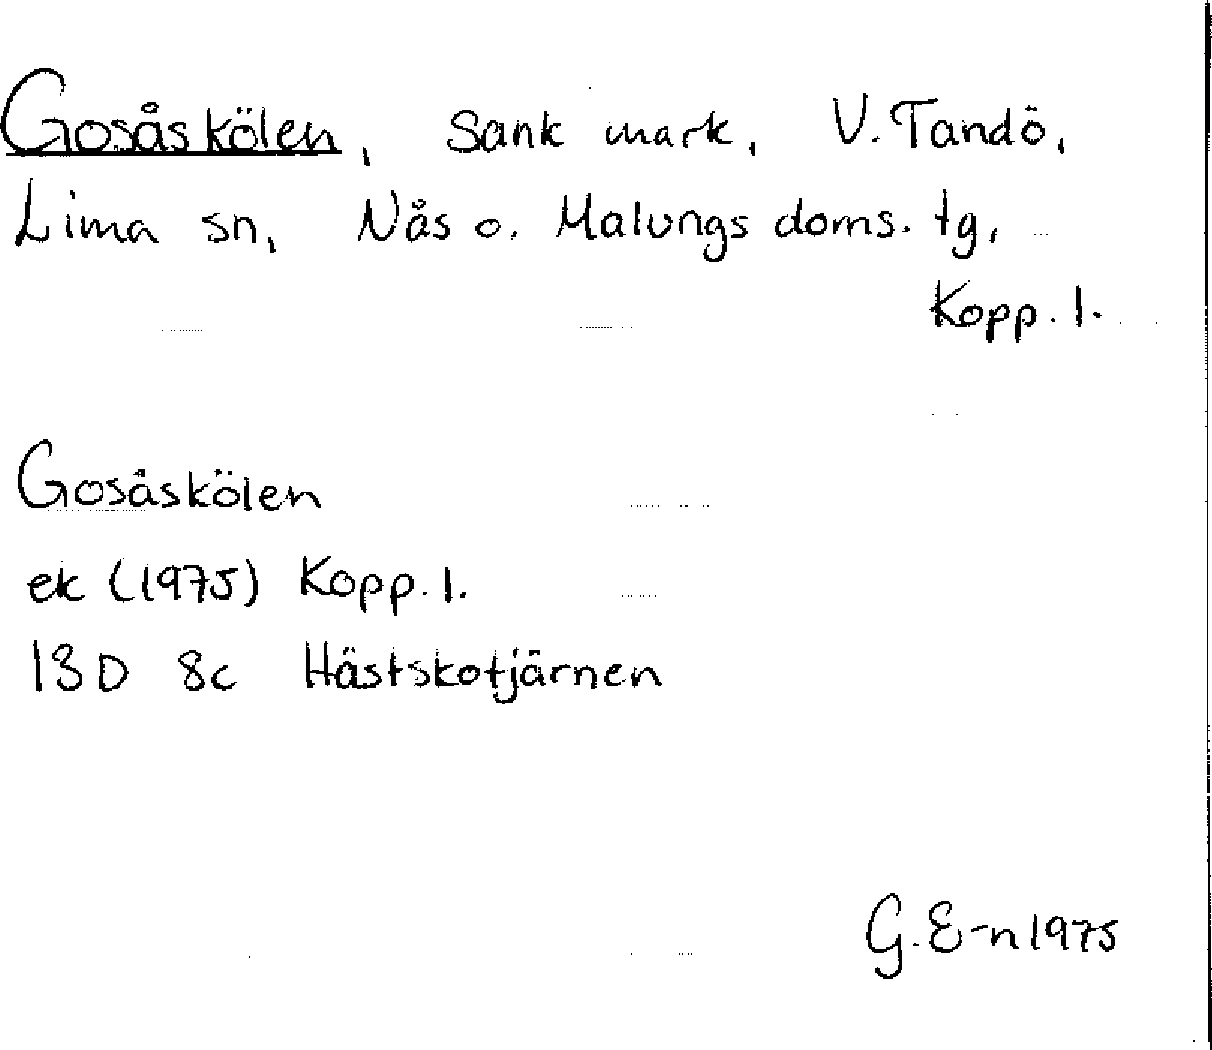 Gosåskölen, Sank mark, V. Tandö,
Lima sn, Nås o. Malungs doms. tg,
Kopp. l.
Gosåskölen
ek (1975) Kopp. l.
13D 8c Hästskotjärnen
G. E-n 1975